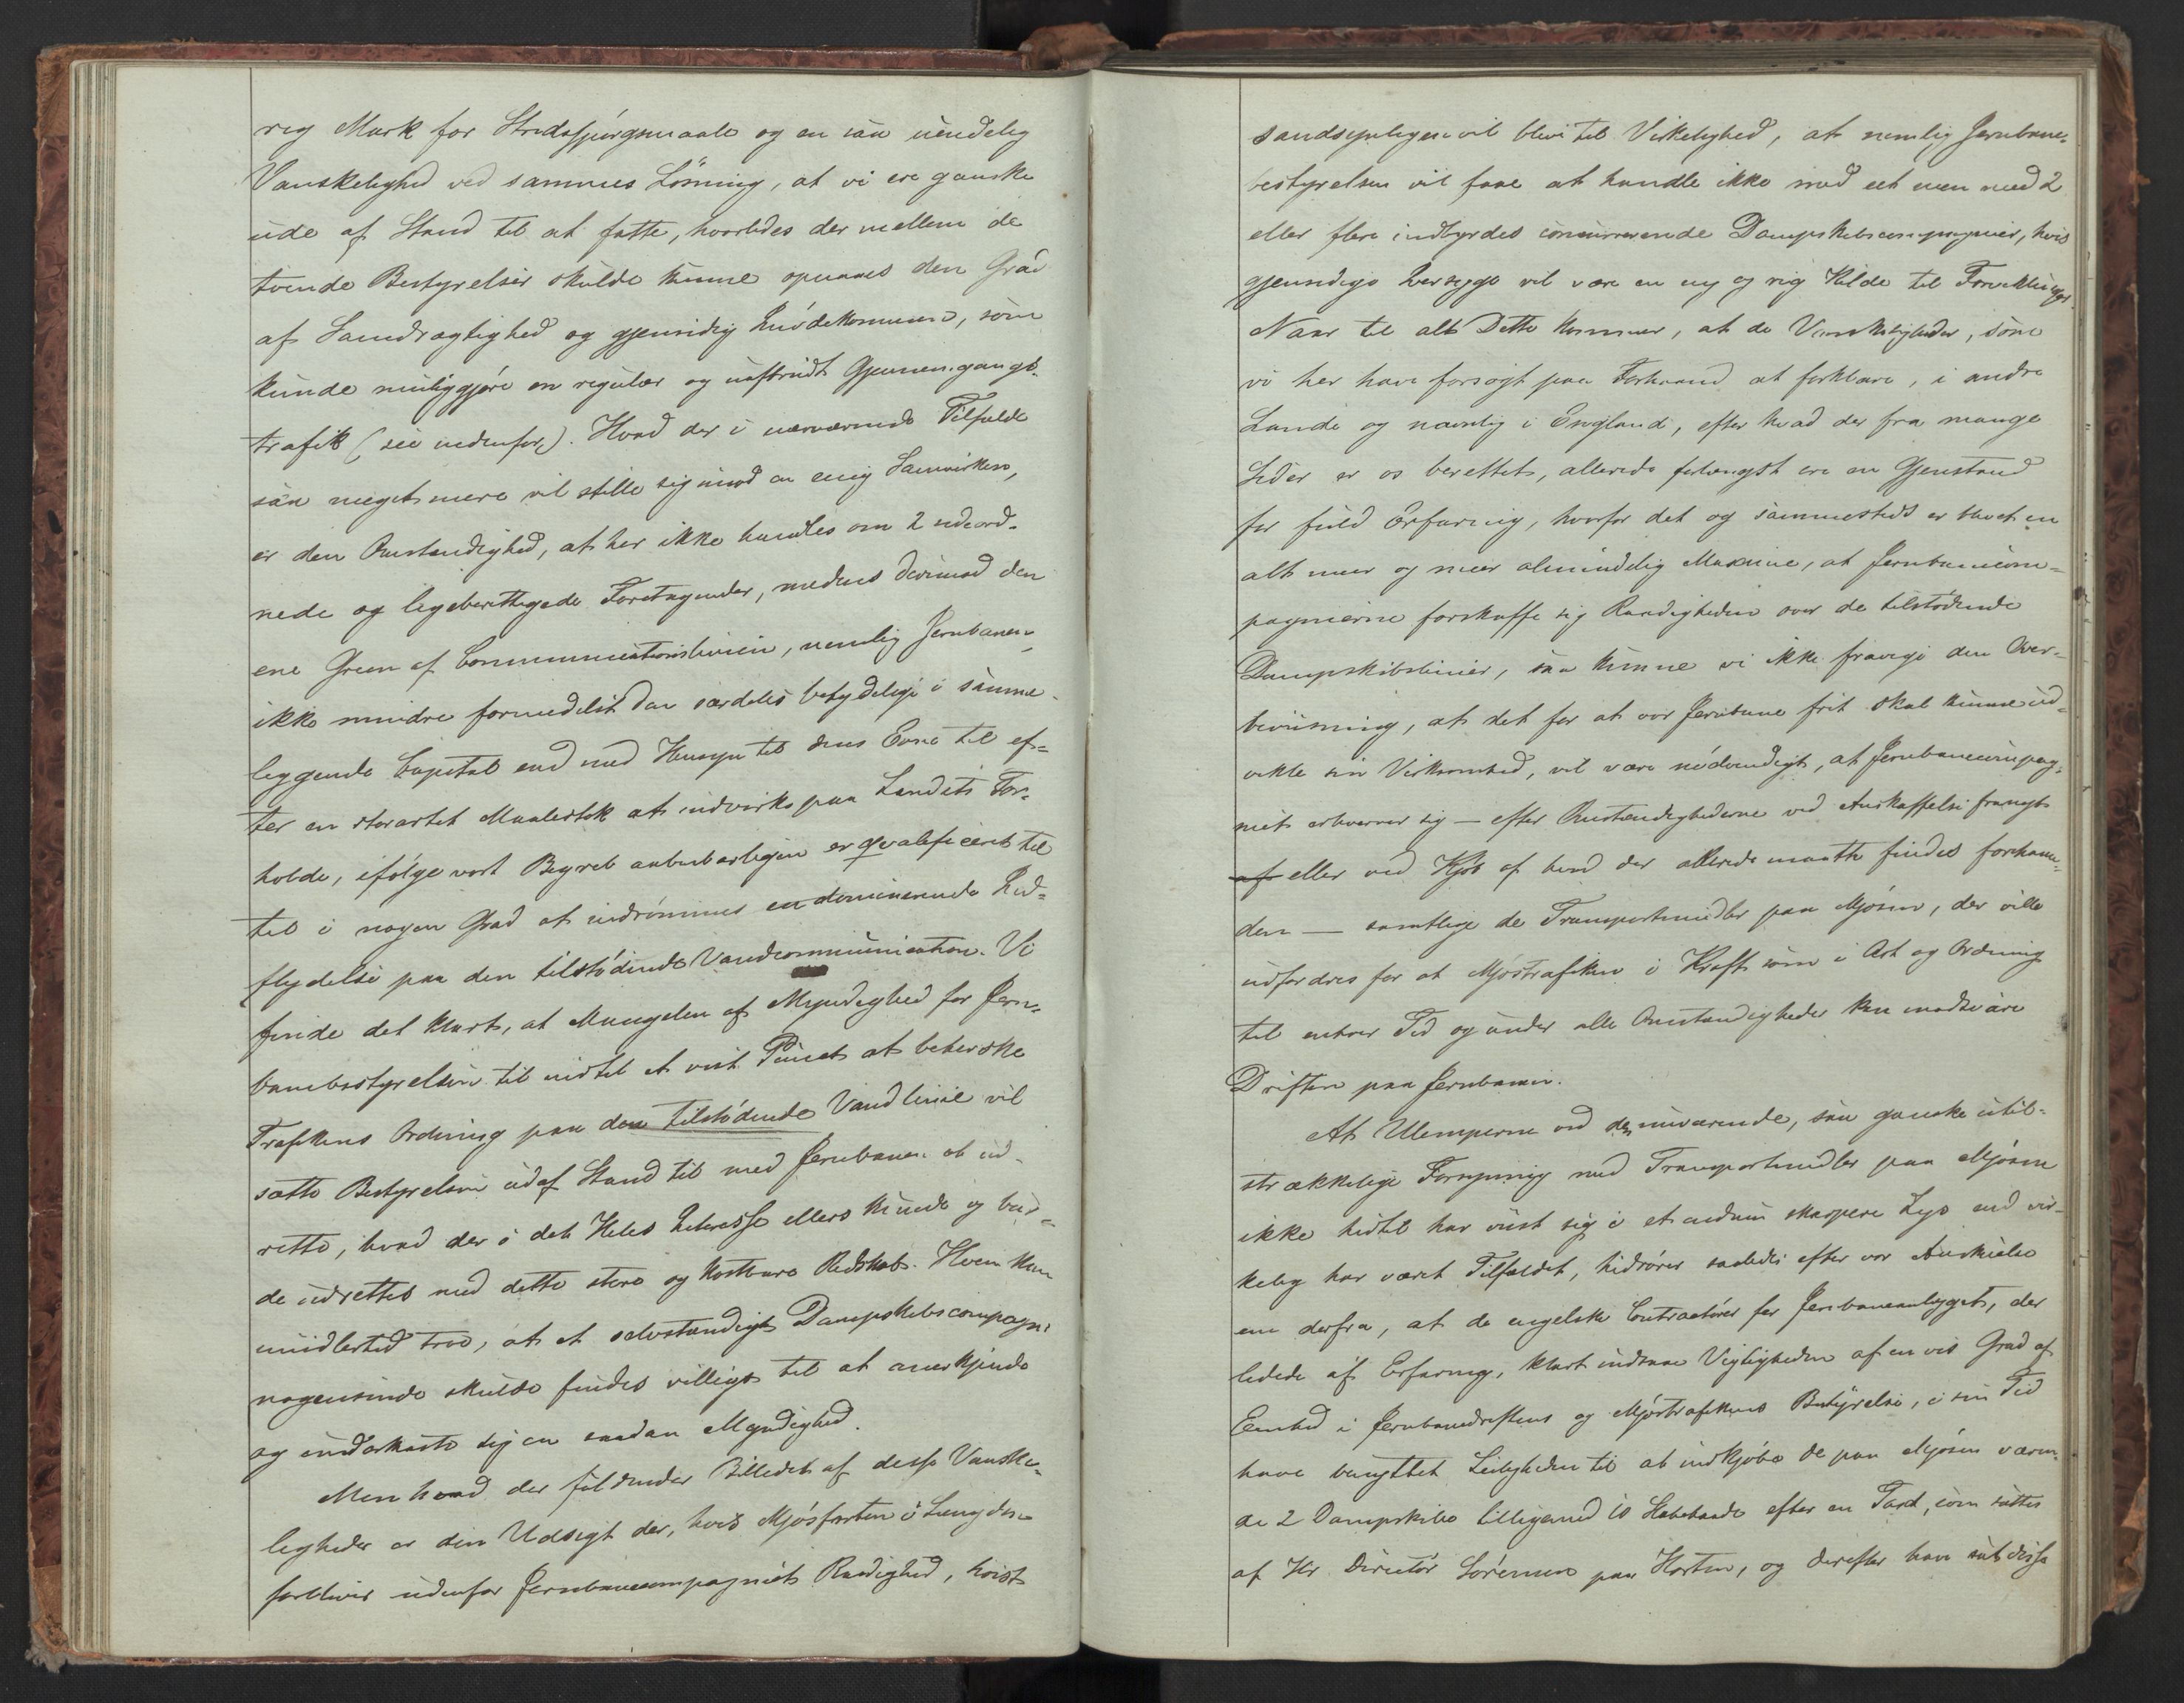 rig Mark for Stridsspørgsmaale og en saa uendelig
Vanskelighed ved sammes Løsning, at vi ere ganske
ude af Stand til at fatte, hvorledes der mellem de
tvende Bestyrelser skulde kunne opnaaes den Grad
af Samdrægtighed og gjensidig Imødekommen, som
kunde muliggjøre en regulær og uafbrudt Gjennemgangs-
trafik (see nedenfor). Hvad der i nærværende Tilfælde
saa meget mere vil stille sig imod en enig Samvirken,
er den Omstændighed, at her ikke handles om 2 sideord-
nede og ligeberettigede Foretagender, medens derimod den
ene Green af Communicationslinien, nemlig Jernbanen,
ikke mindre formedelst den særdeles betydelige i samme
liggende Capital end med Hensyn til dens Evne til ef-
ter en storartet Maalestok at indvirke paa Landets For-
holde, ifølge vort Begreb aabenbarligen er qvalificeret til
til i nogen Grad at indrømmes en dominerende Ind-
flydelse paa den tilstødende Vandcommunication. Vi
finde det klart, at Mangelen af Myndighed for Jern-
banebestyrelsen til indtil et vist Punct at beherske
Trafikens Ordning paa den tilstødende Vandlinie vil
sætte Bestyrelsen ud af Stand til med Jernbanen at ud-
rette, hvad der i det Heles Interesse ellers kunde og bur-
de udrettes med dette store og kostbare Redskab. Hvem kan
imidlertid troe, at et selvstændigt Dampskibscompagni
nogensinde skulde findes villigt til at anerkjende
og underkaste sig en saadan Myndighed.
Men hvad der fuldender Billedet af disse Vanske-
ligheder er den Udsigt der, hvis Mjøsfarten i Længden
forbliver udenfor Jernbanecompagniets Raadighed, høist
sandsynligen vil blive til Virkelighed, at nemlig Jernbane-
bestyrelsen vil faae at handle ikke med eet men med 2
eller flere indbyrdes concurrerende Dampskibscompagnier, hvis
gjensidige Avindsyge vil være en ny og rig Kilde til Forviklinger.
Naar til alt Dette kommer, at de Vanskeligheder, som
vi her have forsøgt paa Forhaand at forklare, i andre
Lande og navnlig i England, efter hvad der fra mange
Sider er os berettet, allerede forlængst ere en Gjenstand
for fuld Erfaring, hvorfor det og sammesteds er blevet en
alt meer og meer almindelig Maxime, at Jernbanecom-
pagnierne forskaffe sig Raadigheden over de tilstødende
Dampskibslinier, saa kunne vi ikke fravige den Over-
beviisning, at det for at vor Jernbane frit skal kunne ud-
vikle sin Virksomhed, vil være nødvendigt, at Jernbanecompag-
niet erhverver sig — efter Omstændighederne ved Anskaffelse
af eller ved Kjøb af hvad der allerede maatte findes forhaan-
den — samtlige de Transportmidler paa Mjøsen, der ville
udfordres for at Mjøstrafiken i Kraft som i Art og Ordning
til enhver Tid og under alle Omstændigheder kan modsvare
Driften paa Jernbanen.
At Ulemperne ved den nuværende, saa ganske util-
strækkelige Forsyning med Transportmidler paa Mjøsen
ikke hidtil har viist sig i et endnu skarpere Lys end vir-
kelig har været Tilfældet, hidrører saaledes efter vor Anskuelse
ene derfra, at de engelske Contractører for Jernbaneanlægget, der
ledede af Erfaring, klart indsaae Vigtigheden af en vis Grad af
Eenhed i Jernbanedriftens og Mjøstrafikens Bestyrelse, i sin Tid
have benyttet Leiligheden til at indkjøbe de paa Mjøsen væren-
de 2 Dampskibe tilligemed 10 Slæbebaade efter en Taxt, som sattes
af Hr Directør Sørensen paa Horten, og derefter have sat disse